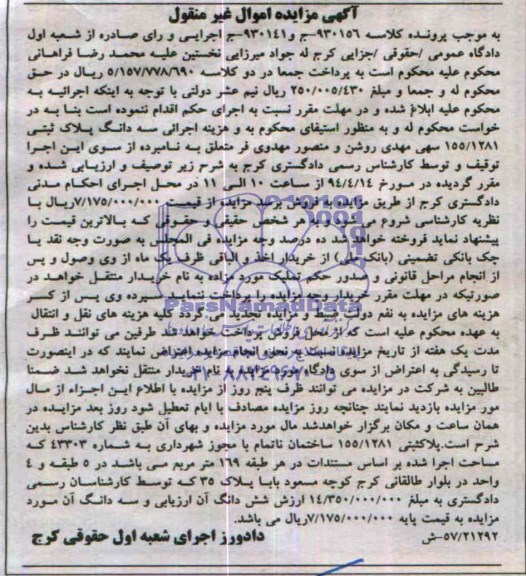 آگهی مزایده اموال غیر منقول
به موجب پرونده کلاسه ۹۳۰۱۵۶-ج و۹۳۰۱۴۱-ج اجرایی و رای صادره از شعبه اول
دادگاه عمومی /حقوقی /جزایی کرج له جواد میرزایی نخستین علیه محمد رضا فراهانی
محکوم علیه محکوم است به پرداخت جمعا در دو کلاسه ۵/۱۵۷/۷۷۸/۶۹۰ ریال در حق
محکوم له و جمعا و مبلغ ۲۵۰/۰۰۵/۴۳۰ ریال نیم عشر دولتی با توجه به اینکه اجرائیه به
محکوم علیه ابلاغ شده و در مهلت مقرر نسبت به اجرای حکم اقدام ننموده است بنا به در
خواست محکوم له و به منظور استیفای محکوم به و هزینه اجرائی سه دانگ پلاک ثبتی
۱۵۵/۱۲۸۱ سهی مهدی روشن و منصور مهدوی فر متعلق به نامبرده از سوی این اجرا
توقیف و توسط کارشناس رسمی دادگستری کرج به شرح زیر توصیف و ارزیابی شده و
مقرر گردیده در مورخ ۹۴/۴/۱۴ از ساعت ۱۰ الی ۱۱ در محل اجرای احکام مدنی
دادگستری کرج از طریق مزایده به فروش برسد مزایده از قیمت ۷/۱۷۵/۰۰۰/۰۰۰ریال با
نظریه کارشناسی شروع می شود و به هر شخص حقیقی و حقوقی که بالاترین قیمت را
پیشنهاد نماید فروخته خواهد شد ده درصد وجه مزایده فی المجلس به صورت وجه نقد یا
چک بانکی تضمینی (بانک ملی) از خریدار اخذ و الباقی ظرف یک ماه از وی وصول و پس
از انجام مراحل قانونی و صدور حکم تملیک مورد مزاده به نام خریدار منتقل خواهد در
صورتیکه در مهلت مقرر خریدار وجه مزایده را پرداخت ننماید سپرده وی پس از کسر
هزینه های مزایده به نفع دولت ضبط و مزایده تجدید می گردد کلیه هزینه های نقل و انتقال
به عهده محکوم علیه است که از محل فروش پرداخت خواهد شد طرفین می توانند ظرف
مدت یک هفته از تاریخ مزایده نسبت به نحوه انجام مزایده اعتراض نمایند که در اینصورت
تا رسیدگی به اعتراض از سوی دادگاه مورد مزایده به نام خریدار منتقل نخواهد شد ضمنا
طالبین به شرکت در مزایده می توانند ظرف پنج روز از مزایده با اطلاع این اجراء از مال
مور مزایده بازدید نمایند چنانچه روز مزایده مصادف با ایام تعطیل شود روز بعد مزایده در
همان ساعت و مکان برگزار خواهدشد مال مورد مزایده و بهای آن طبق نظر کارشناس بدین
شرح است.پلاکثبتی ۱۵۵/۱۲۸۱ ساختمان ناتمام با مجوز شهرداری به شماره ۴۳۳۰۳ که
مساحت اجرا شده بر اساس مستندات در هر طبقه ۱۶۹ متر مربع می باشد در ۵ طبقه و ۴
واحد در بلوار طالقانی کرج کوچه مسعود بابا پلاک ۳۵ که توسط کارشناسان رسمی
دادگستری به مبلغ ۱۴/۳۵۰/۰۰۰/۰۰۰ ارزش شش دانگ آن ارزیابی و سه دانگ آن مورد
مزایده به قیمت پایه ۷/۱۷۵/۰۰۰/۰۰۰ریال می باشد.
۵۷/۲۱۲۹۲-ش دادورز اجرای شعبه اول حقوقی کرج
ParsNamadData